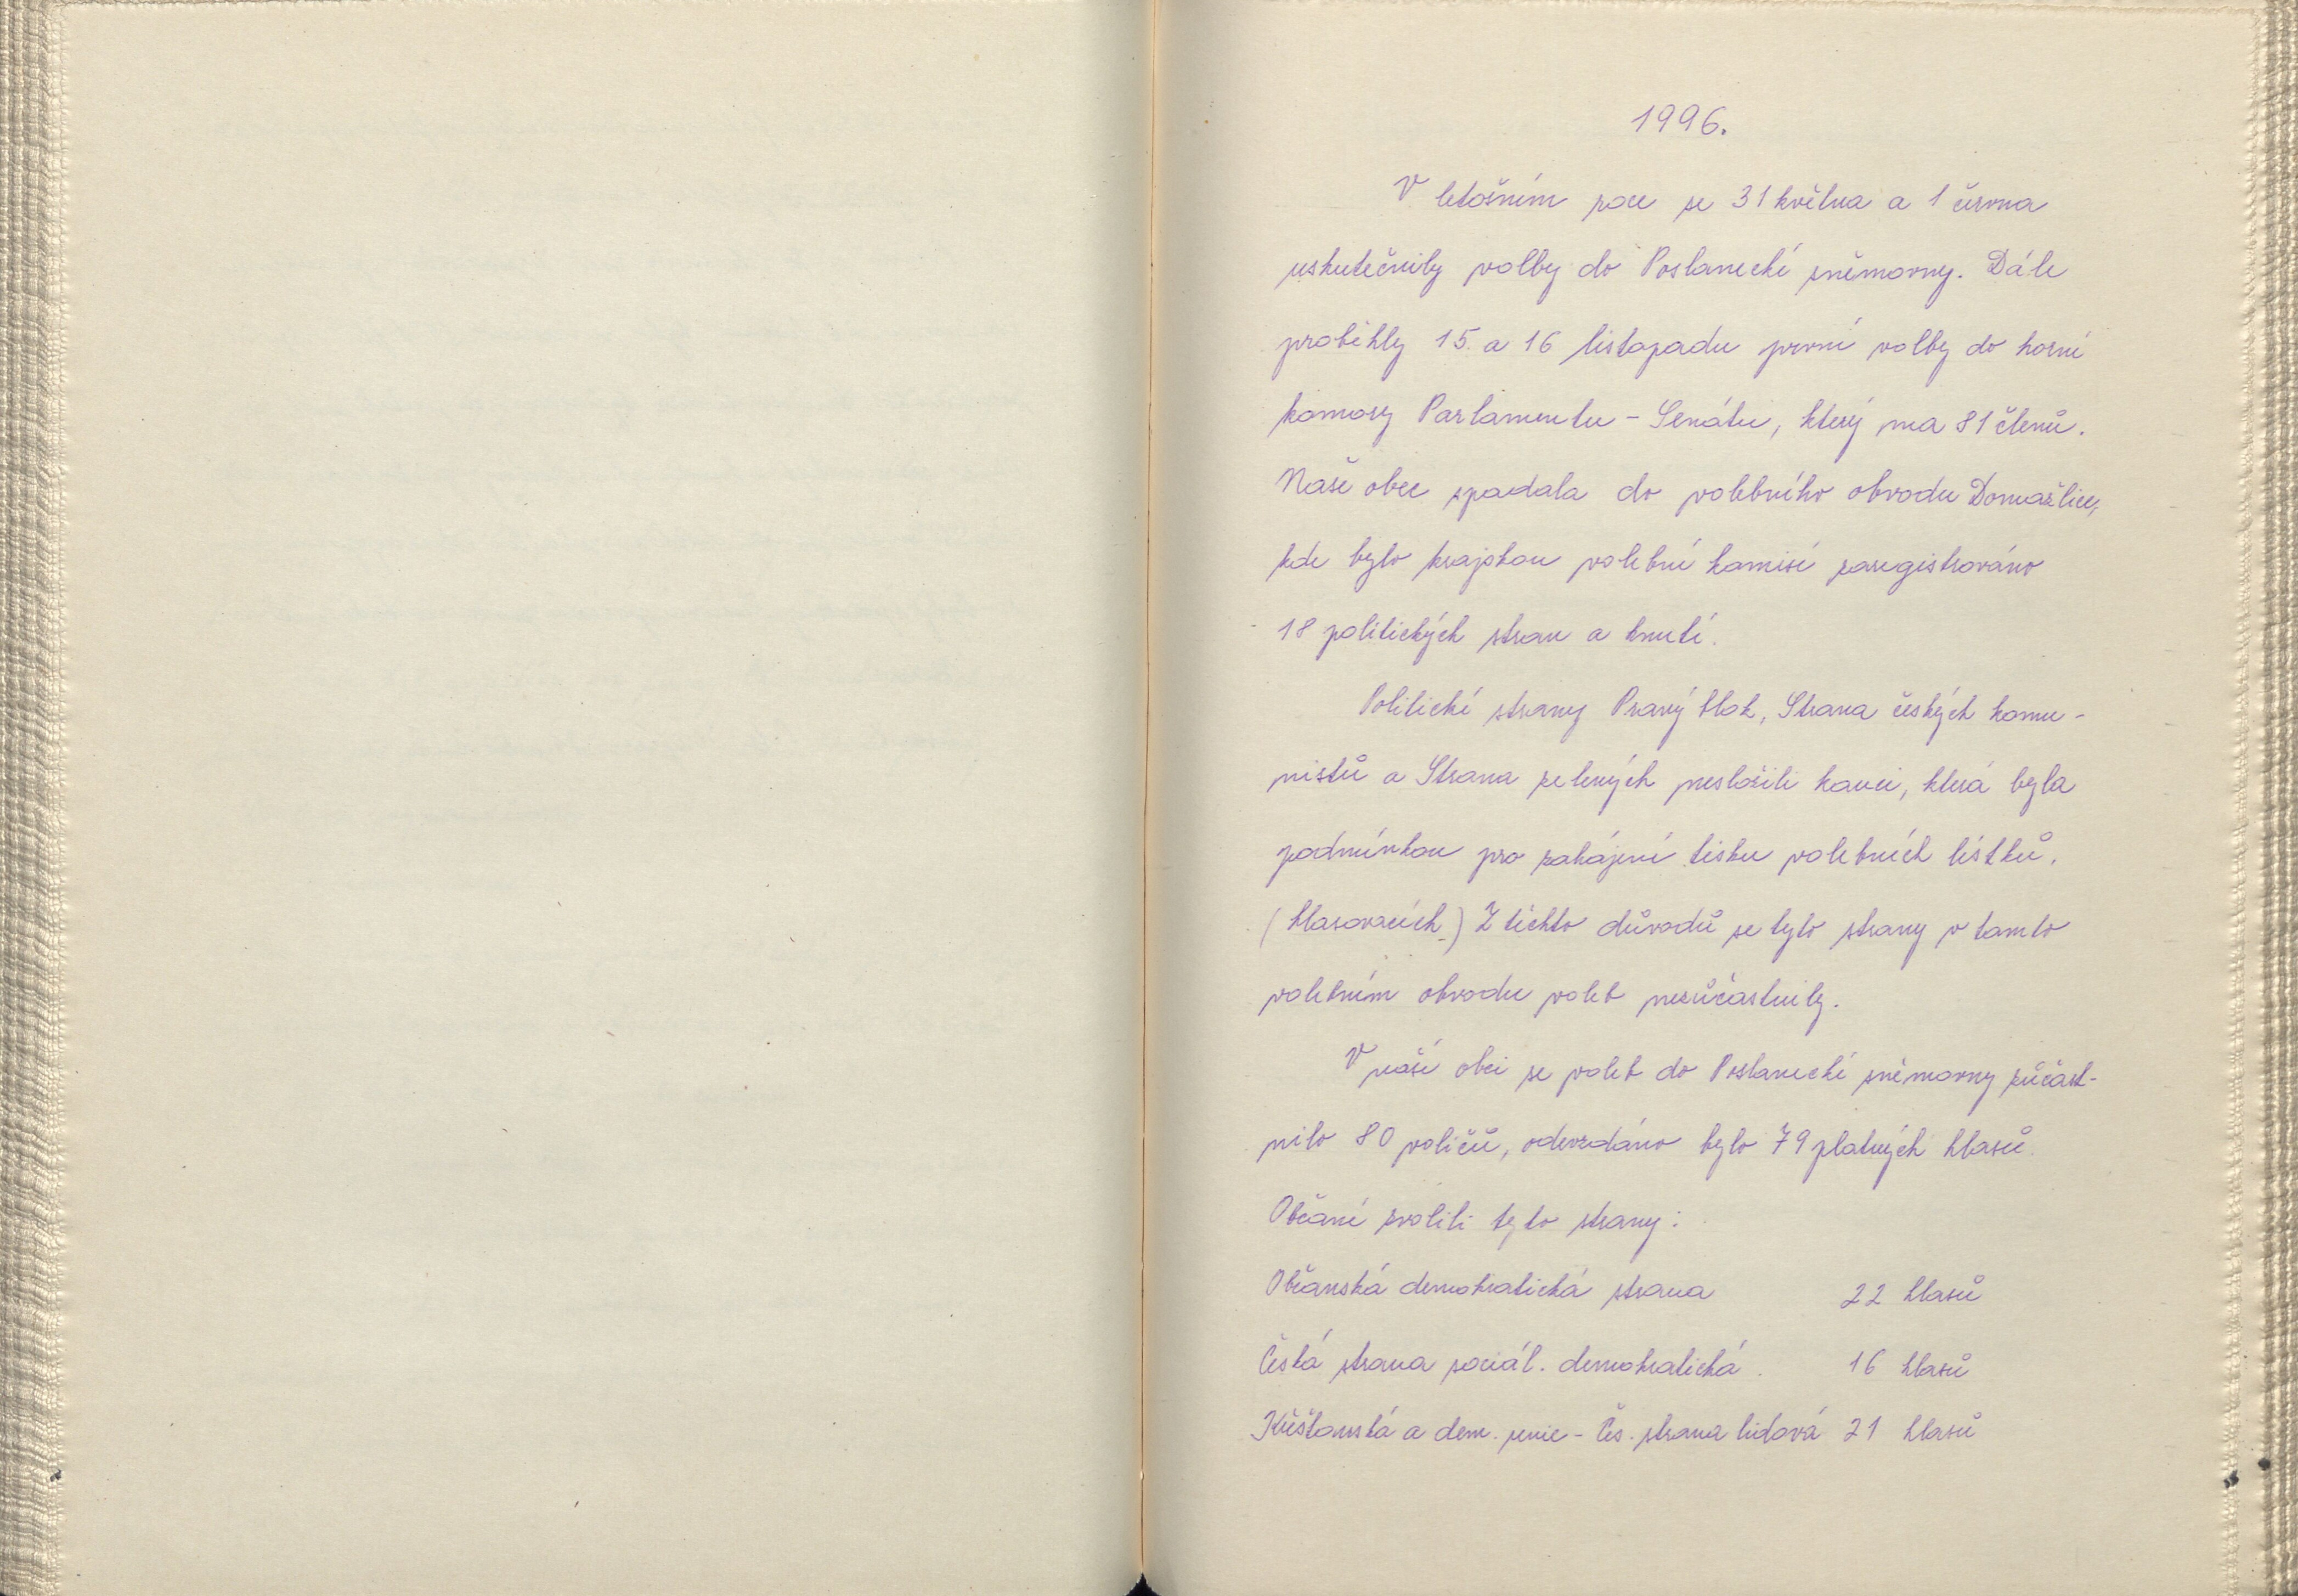 1996.
V letošním roce se 31 května a 1 června
uskutečnily volby do Poslanecké sněmovny. Dále
proběhly 15 a 16 listopadu první volby do horní
komory Parlamentu - Senátu, který ma 81 členů.
Naše obec spadala do volebního obvodu Domažlice,
kde bylo krajskou volební komisí zaregistrováno
18 politických stran a hnutí.
Politické strany Pravý blok, Strana českých komu-
nistů a Strana zelených nesložili kauci, která byla
podmínkou pro zahájení tisku volebních lístků.
(hlasovacích) Z těchto důvodů se tyto strany v tomto
volebním obvodu voleb nezůčastnily.
V naší obci se voleb do Poslanecké sněmovny zůčast-
nilo 80 voličů, odevzdáno bylo 79 platných hlasů.
Občané zvolili tyto strany:
Občanská demokratická strana 22 hlasů
Česká strana sociál. demokratická 16 hlasů
Křešťanská a dem. unie - Čes. strana lidová 21 hlasů